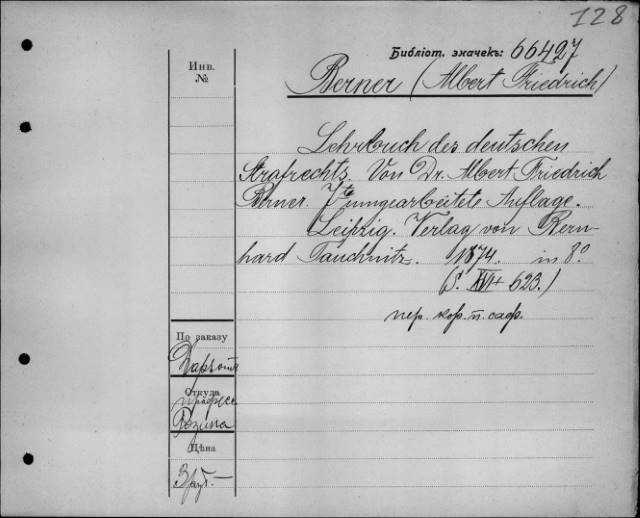 128
Библіот. значекъ: 66427
Инв.
№
Berner (Albert Friedrich)
Lehrbuch des deutschen
Strafrechts. Von Dr. Albert Friedrich
Berner. 7te umgearbeitete Auflage.
Leipzig. Verlag von Bern-
hard Tauchnitz. 1874. in 8º
(S. XVI + 623.)
пер. кор. п. саф.
По заказу
Откуда
Розина
Цѣна
3 руб. —